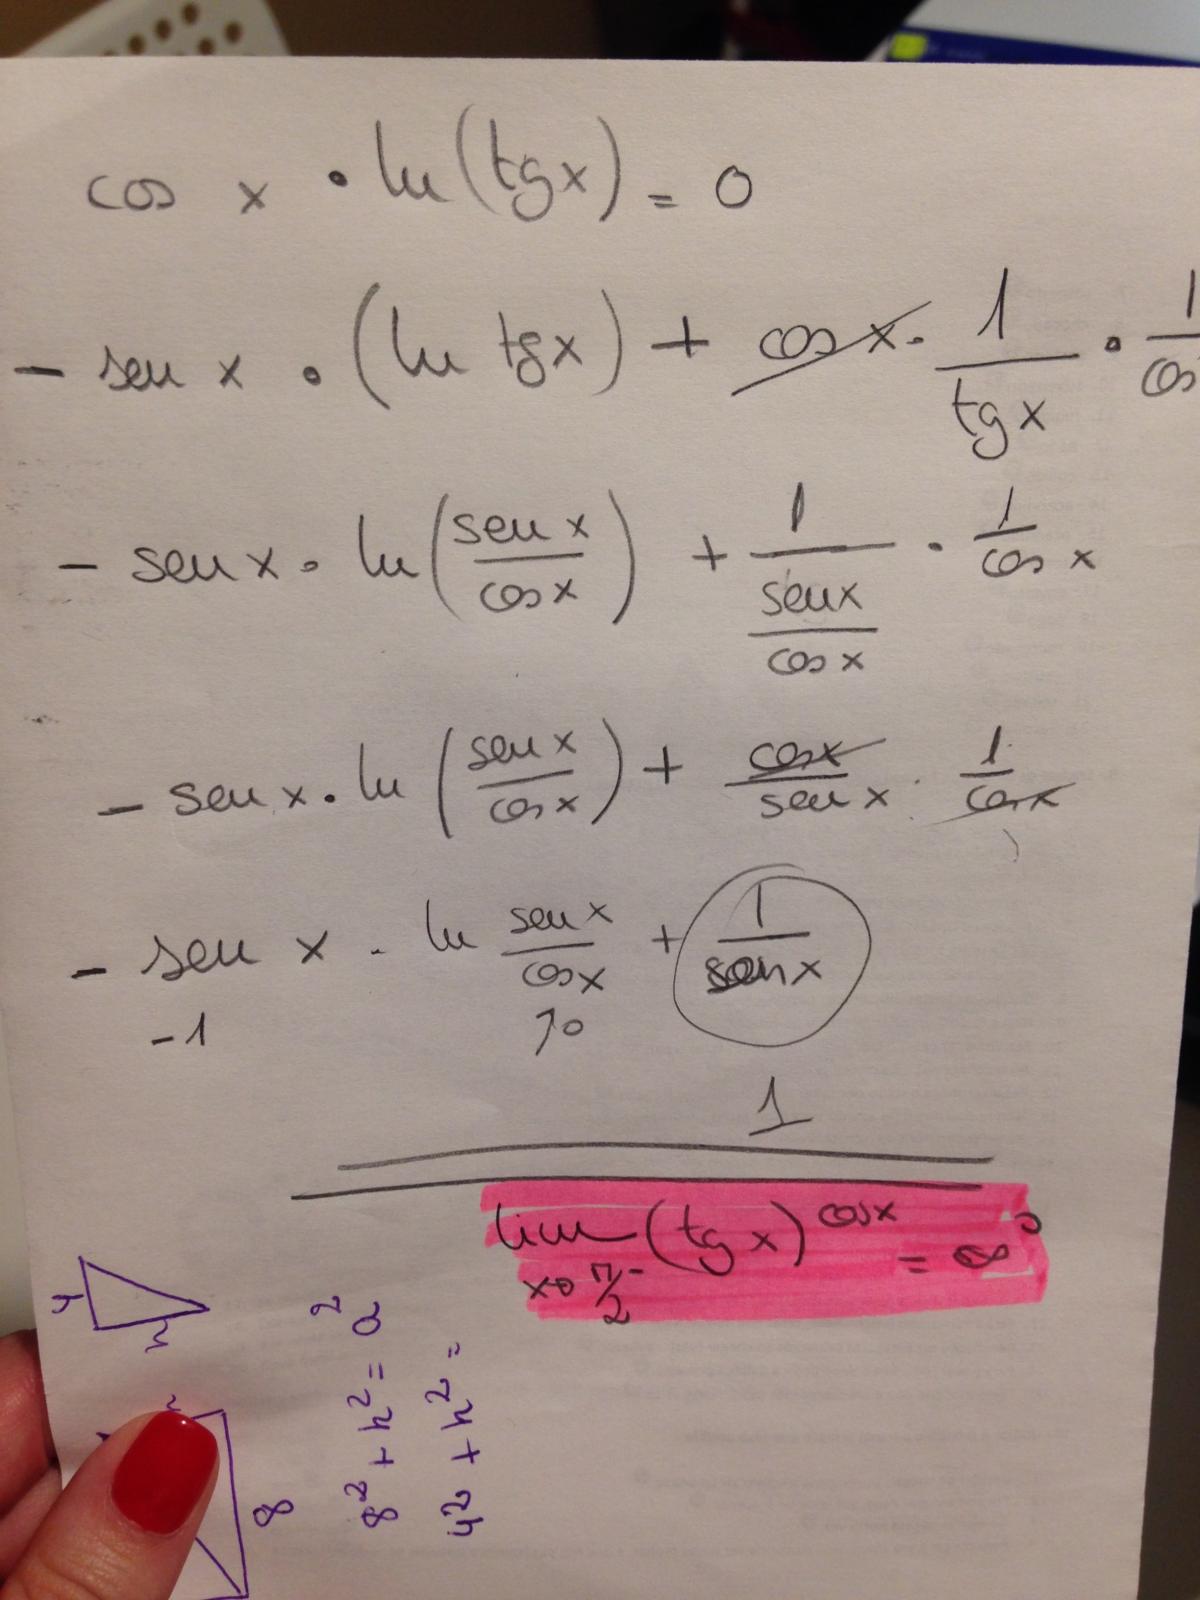 cos x · ln(tgx) = 0
- sen x · (ln tgx) + cos x · 1/tgx · 1/cos
- sen x · ln(sen x/cos x) + 1/(sen x/cos x) · 1/cos x
- sen x · ln(sen x/cos x) + cos x/sen x · 1/cos x
- sen x · ln sen x/cos x + 1/sen x
-1
1
lim (tg x)^cos x = ∞^0
x→ π/2^-
4
h
8
8² + h² = a²
4² + h² =